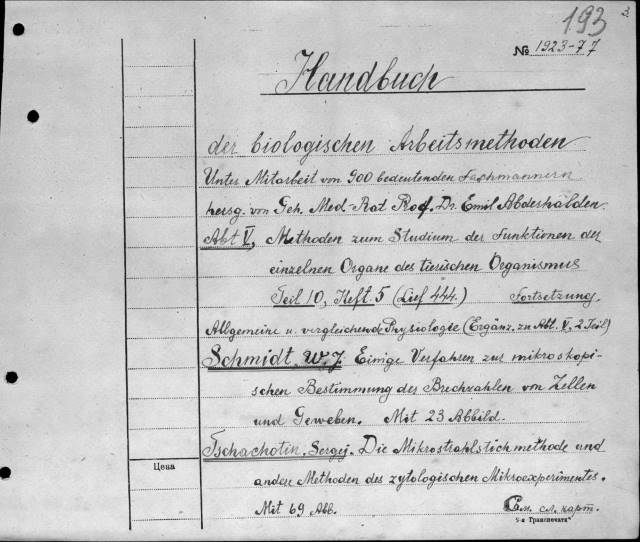 3
193
№ 1923-77
Handbuch
der biologischen Arbeitsmethoden
Unter Mitarbeit von 900 bedeutenden Fachmannern
hersg. von Geh. Med. Rat Prof. Dr. Emil Abderhalden.
Abt V, Methoden zum Studium der Funktionen der
einzelnen Organe des tierischen Organismus
Teil 10, Heft 5 (Lief 444.) Fortsetzung.
Allgemeine u. vergleichende Physiologie (Ergänz. zu Abt. V, 2 Teil)
Schmidt, W. J. Einige Verfahren zur mikroskopi-
schen Bestimmung des Brechzahlen von Zellen
und Geweben. Mit 23 Abbild.
Tschachotin, Sergej. Die Mikrostrahlstichmethode und
andere Methoden des zytologischen Mikroexperimentes.
Цена
Mit 69 Abb.
См. сл. карт.
9-я Транспечать